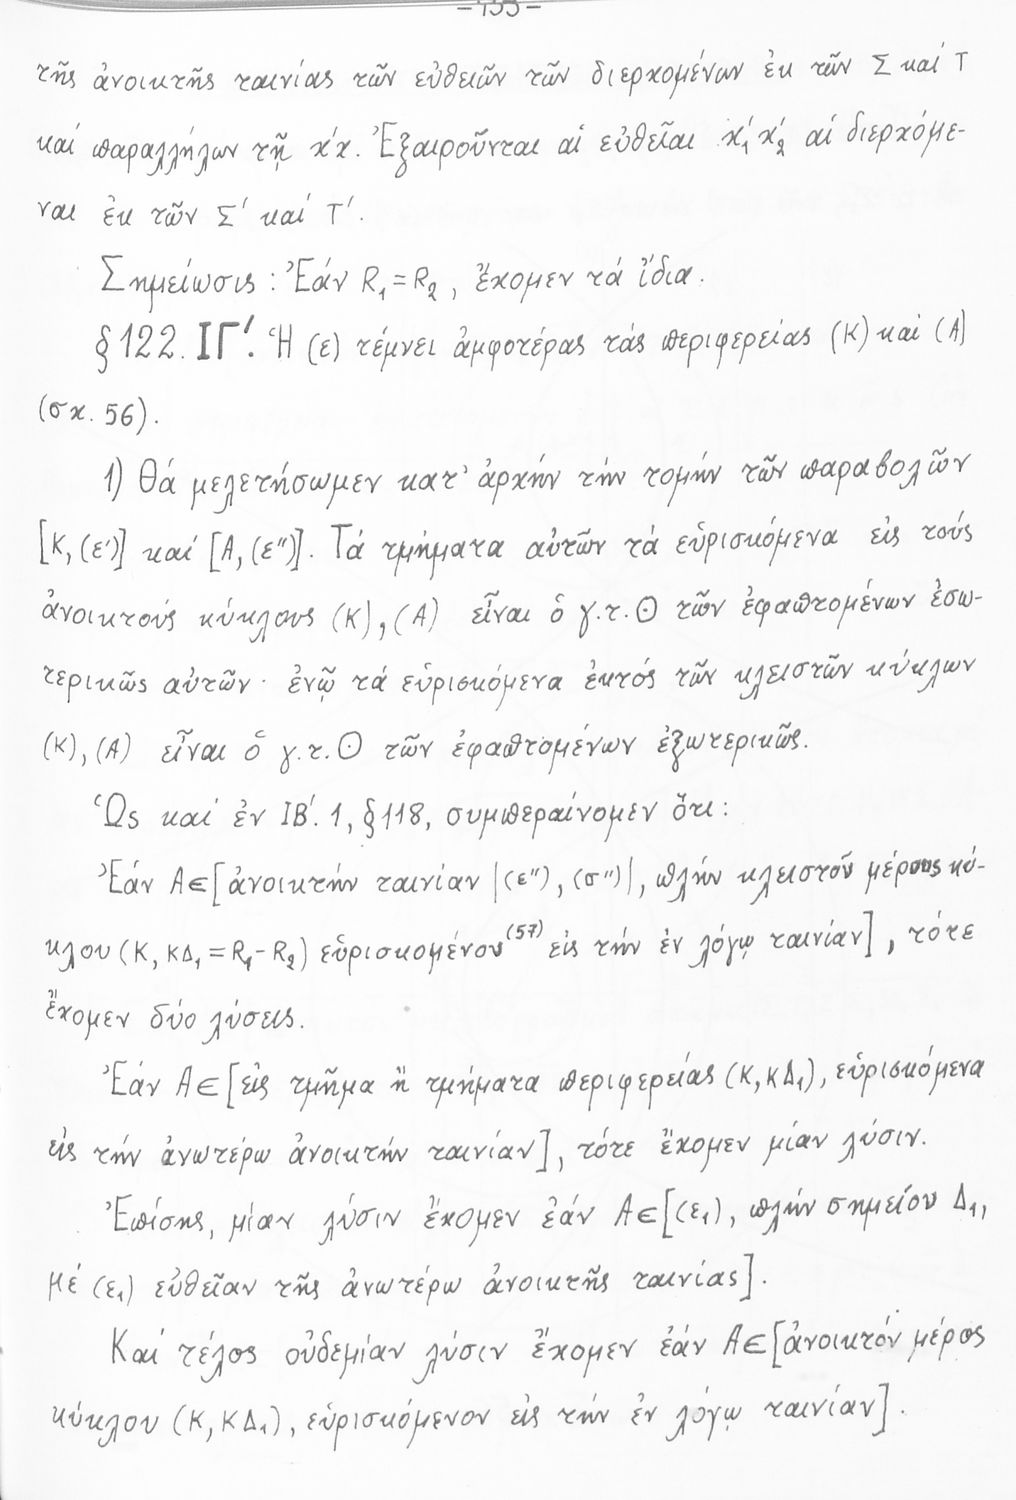 τῆς ἀνοικτῆς ταινίας τῶν εὐθειῶν τῶν διερχομένων ἐκ τῶν Σ καί Τ
καί παραλλήλων τῇ x΄x. Ἐξαιροῦνται αἱ εὐθεῖαι x΄₁x΄₂ αἱ διερχόμε-
ναι ἐκ τῶν Σ΄ καί Τ΄.
Σημείωσις: Ἐάν R₁=R₂, ἔχομεν τά ἴδια.
§122. ΙΓ΄. Ἡ (ε) τέμνει ἀμφοτέρας τάς περιφερείας (Κ) καί (Α)
(σχ. 56).
1) Θά μελετήσωμεν κατ᾽ ἀρχήν τήν τομήν τῶν παραβολῶν
[Κ, (ε΄)] καί [Α, (ε΄΄)]. Τά τμήματα αὐτῶν τά εὑρισκόμενα εἰς τούς
ἀνοικτούς κύκλους (Κ), (Α) εἶναι ὁ γ.τ. Θ τῶν ἐφαπτομένων ἐσω-
τερικῶς αὐτῶν· ἐνῷ τά εὑρισκόμενα ἐκτός τῶν κλειστῶν κύκλων
(Κ), (Α) εἶναι ὁ γ.τ. Θ τῶν ἐφαπτομένων ἐξωτερικῶς.
Ὡς καί ἐν ΙΒ΄. 1, §118, συμπεραίνομεν ὅτι:
Ἐάν Α∈[ἀνοικτήν ταινίαν |(ε΄΄), (σ΄΄)|, πλήν κλειστοῦ μέρους κύ-
κλου (Κ, ΚΔ₁=R₁-R₂) εὑρισκομένου⁽⁵⁷⁾ εἰς τήν ἐν λόγῳ ταινίαν], τότε
ἔχομεν δύο λύσεις.
Ἐάν Α∈[εἰς τμῆμα ἤ τμήματα περιφερείας (Κ, ΚΔ₁), εὑρισκόμενα
εἰς τήν ἀνωτέρω ἀνοικτήν ταινίαν], τότε ἔχομεν μίαν λύσιν.
Ἐπίσης, μίαν λύσιν ἔχομεν ἐάν Α∈[(ε₁), πλήν σημείου Δ₁,
μέ (ε₁) εὐθεῖαν τῆς ἀνωτέρω ἀνοικτῆς ταινίας].
Καί τέλος οὐδεμίαν λύσιν ἔχομεν ἐάν Α∈[ἀνοικτόν μέρος
κύκλου (Κ, ΚΔ₁), εὑρισκόμενον εἰς τήν ἐν λόγῳ ταινίαν].